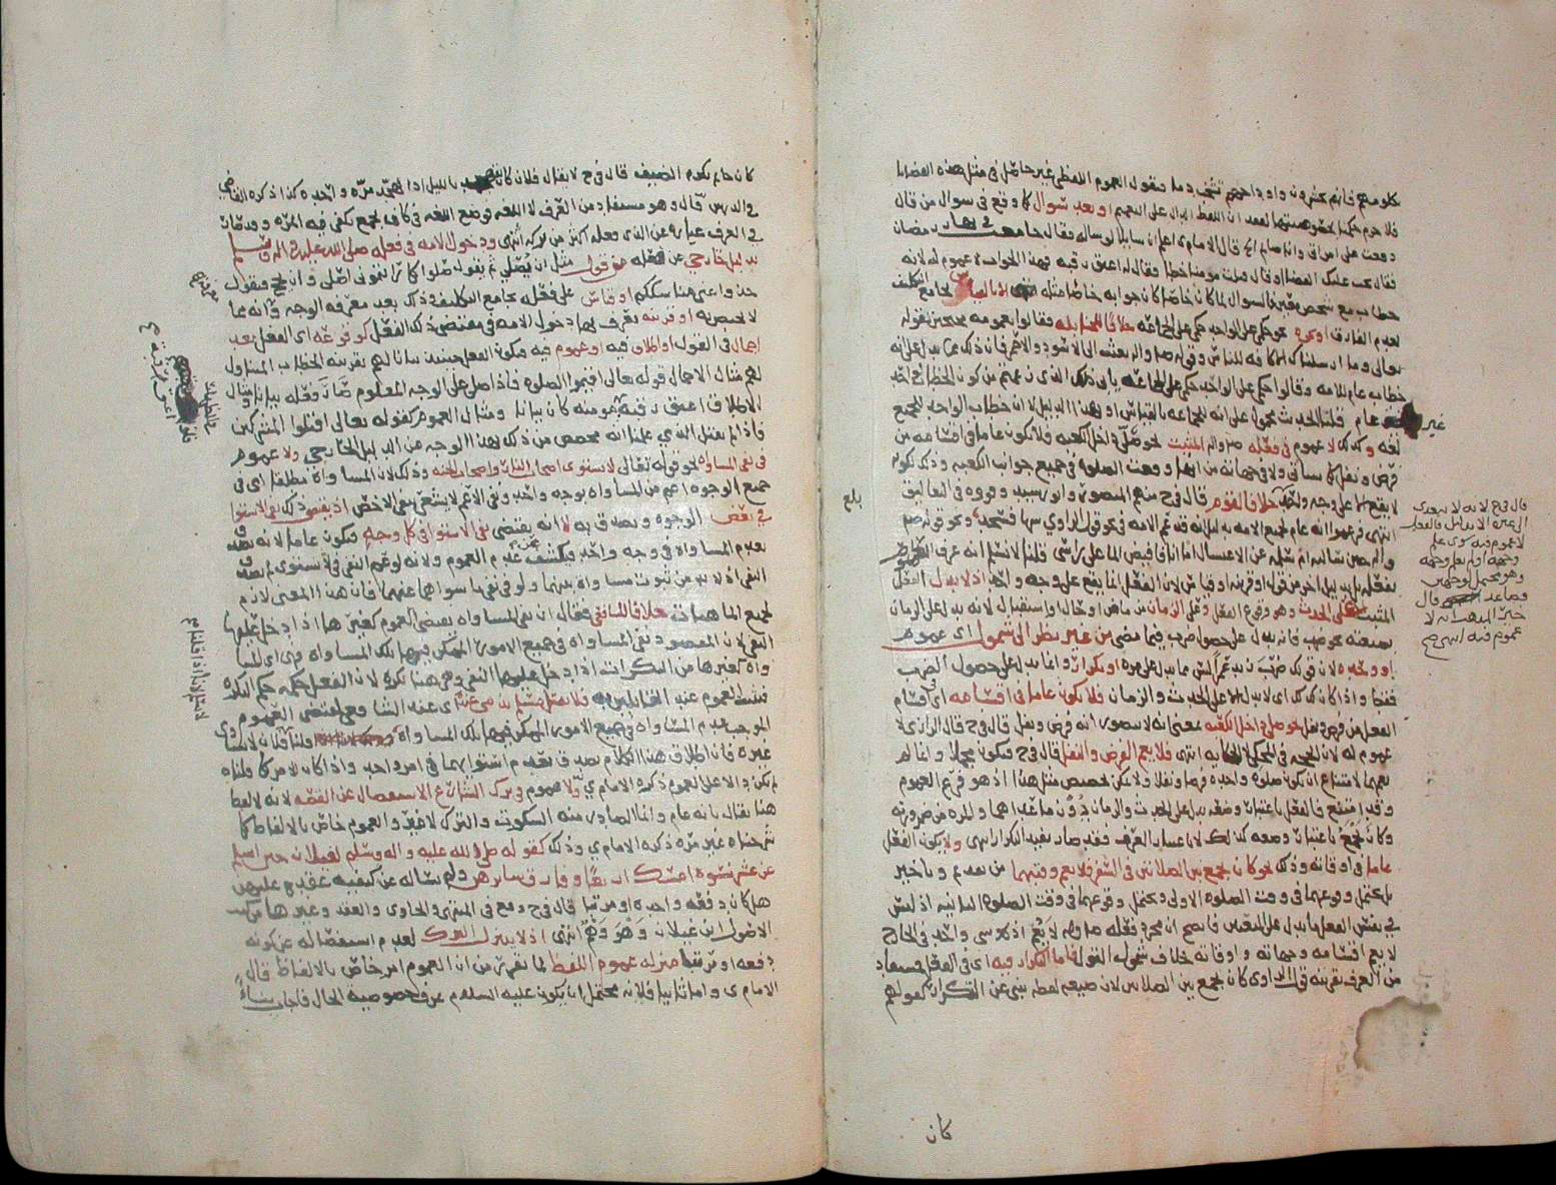 فلا جرم حكمنا بحقه
دفعت على امرأتي وأنا صائم قال الامام ي اعلم ان سائلا لو سأله فقال جامعت في نهار رمضان
فقال يجب عليك او قال قبلت مومنا خطا فقال له اعتق رقبة فهذا الجواب لا عموم له لانه
خطاب مع شخص لما كان خاصا كان جوابه خاصا مثله لجامع التكليف
لعدم الفارق او نحو حكمي على الواحد حكمي على الجماعة خلافا للحنابلة فقالوا بعمومه محتجين بقوله
تعالى وما ارسلناك الا كافة للناس وقوله صلى الله عليه واله بعثت الى الاسود والاحمر فان ذلك مما يدل على انه
خطاب عام للامة وقالوا حكمي على الواحد حكمي على الجماعة يابى ذلك من كون الخطاب مع احد
غير عام قلنا الحديث محمول على انه للجماعة بالقياس او بهذا الدليل لا ان خطاب الواحد للجميع
لغة وكذلك لا عموم في فعله صلى الله عليه واله المثبت نحو صلى داخل الكعبة فلا يكون عاما في اقسامه من
فرض ونفل كما سياتي ولا في جهاته من وقعت الصلوة في جميع جوانب الكعبة وذلك لكونه
لا يقع الا على وجه واحد خلافا لقوم قال في ح منهم المنصور
انتهى فزعموا انه عام لجميع الامة بدليل انه قد عم الامة في نحو قول الراوي سها فسجد ونحو قوله صلى الله عليه
واله حين سالته ام سلمة عن الاغتسال اما انا فافيض الماء على راسي قلنا لا نسلم انه عرف العموم
بفعله بل بدليل اخر من قول او قرينة او قياس لان الفعل انما يقع على وجه واحد اذ لا يدل الفعل
المثبت على الحدث وهو وقوع الفعل وعلى الزمان من ماض او حال او استقبال لانه يدل على الزمان
بصيغته نحو ضرب فانه يدل على حصول ضرب فيما مضى من غير نظر الى شمول اى عموم
او وحدة لان قولك ضرب زيد عمرا ليس مما يدل على مرة او تكرار وانما يدل على حصول الضرب
فقط واذا كان كذلك اى لا يدل الا على الحدث والزمان فلا يكون عاما في اقسامه اى اقسام
الفعل من فرض ونفل نحو صلى داخل الكعبة بمعنى انه لا يتصور انه فرض ونفل قال في ح قال الرازي لا
عموم له لان الحجة في المحكي لا الحكاية انتهى فلا يعم الفرض والنفل قال في ح فيكون مجملا وانما لم
يعمهما لامتناع ان تكون صلوة واحدة فرضا ونفلا ولا يمكن تخصيص مثل هذا اذ هو فرع العموم
وقد امتنع فالفعل باعتبار وضعه يدل على الحدث والزمان دون ما عداهما والمرة من ضرورته
وكان يجمع باعتبار وضعه كذلك لا باعتبار العرف فقد صار يفيد التكرار انتهى ولا يكون الفعل
عاما في اوقاته وذلك نحو كان يجمع بين الصلاتين في السفر فلا يعم وقتيهما من تقديم وتاخير
بل يحتمل وقوعهما في وقت الصلوة الاولى ويحتمل وقوعهما في وقت الصلوة الثانية اذ ليس
في نفس الفعل ما يدل على التعيين فاتضح ان مجرد فعله صلى الله عليه وسلم لا يعم اذ لا شي واحد في الخارج
لا يعم اقسامه وجهاته واوقاته بخلاف شمول القول فاما التكرار فيه اى في الفعل فمستفاد
من العرف بقرينة قول الراوى كان يجمع بين الصلاتين لان صيغة لفظه ينبئ عن التكرار كقولهم
كان
قال في ح لانه لا يتعدى
الى غيره الا بدليل فالفعل
لا عموم فيه سوى علم
وجهه او لم يعلم وجهه
وهو محتمل لوجهين
فصاعدا قال
عموم فيه انتهى
بلغ
كان حاتم يكرم الضيف قال في ح لا يقال فلان كان يتهجد بالليل اذا تهجد مرة واحدة كذا ذكره القاضي
قال وهو مستفاد من العرف لا اللغة فوضع اللغة في كان يجمع يكفي فيه المرة وقد صار
في العرف عبارة عن الذي فعله اكثر من مرة انتهى ودخول الامة في فعله صلى الله عليه واله وسلم
بدليل خارجي عن فعله من قول مثل ان يصلي ثم يقول صلوا كما رايتموني اصلي وان يحج فيقول
خذوا عني مناسككم او قياس على فعله بجامع التكليف وذلك بعد معرفة الوجه وانه مما
لا يختص به او قرينة يعرف بها دخول الامة في مقتضى ذلك الفعل كوقوعه اى الفعل بعد
اجمال في القول او اطلاق فيه او عموم فيه فيكون الفعل حينئذ بيانا لهم بقرينة الخطاب المتناول
لهم مثال الاجمال قوله تعالى اقيموا الصلوة فاذا صلى على الوجه المعلوم صار فعله بيانا ومثال
الاطلاق اعتق رقبة مومنة كان بيانا ومثال العموم كقوله تعالى اقتلوا المشركين
فاذا لم يقتل الذمي علمنا انه مخصص من ذلك بهذا الوجه عن الدليل الخارجي ولا عموم
في نفي المساواة نحو قوله تعالى لا يستوى اصحاب النار واصحاب الجنة وذلك لان المساواة مطلقا اى في
جميع الوجوه اعم من المساواة بوجه واحد ونفي الاعم لا يستلزم نفي الاخص اذ يقتضي ذلك نفي الاستوا
في بعض الوجوه ويصدق به لا انه يقتضي نفي الاستوا في كل وجه فيكون عاما لانه يصدق
بعدم المساواة في وجه واحد فيكشف عن عدم العموم ولانه لو عم النفي في لا يستوى لم يصدق
النفي اذ لا بد من ثبوت مساواة بينهما ولو في نفي ما سواهما عنهما فان هذا المعنى لازم
لجميع الماهيات خلافا للشافعي فقال ان نفي المساواة يقتضي العموم كغيرها اذا دخل عليها
النفي لان المقصود نفي المساواة في جميع الامور الممكن فيها تلك المساواة فهي اى المسا
واة كغيرها من النكرات اذا دخل عليها النفي وهي هنا نكرة لان الفعل حكمه حكم النكرة
فيفيد العموم عند القائلين به فلا يقتل مسلم بذمي عند الشافعي لمقتضى العموم
الموجب عدم المساواة في جميع الامور الممكن فيها تلك المساواة قلنا فلان لا يساوي
غيره فان اطلاق هذا الكلام يصدق بعدم استوائهما في امر واحد واذا كان الامر كما قلناه
لم يكن دالا على العموم ذكره الامام ي ولا عموم في ترك الشارع الاستفصال عن القصة لانه لا لفظ
هنا يقال بانه عام وانما الصادر منه السكوت والترك لا غير والعموم خاص بالالفاظ كما
شرحناه غير مرة ذكره الامام ي وذلك كقوله صلى الله عليه واله وسلم لغيلان حين اسلم
عن عشر نسوة امسك اربعا وفارق سائرهن ولم يساله عن كيفية عقده عليهن
هل كان دفعة واحدة او مرتبا قال في ح وقع في المنتهى والحاوى والعقد وغيرها من كتب
الاصول ابن غيلان وهو وهم انتهى اذ لا ينزل الترك لعدم استفصاله عن كونه
دفعة او مرتبا منزلة عموم اللفظ لما تقرر من ان العموم امر خاص بالالفاظ قال
الامام ي واما ثانيا فلانه محتمل ان يكون عليه السلام عرف خصوصية الحال فاجاب بناء